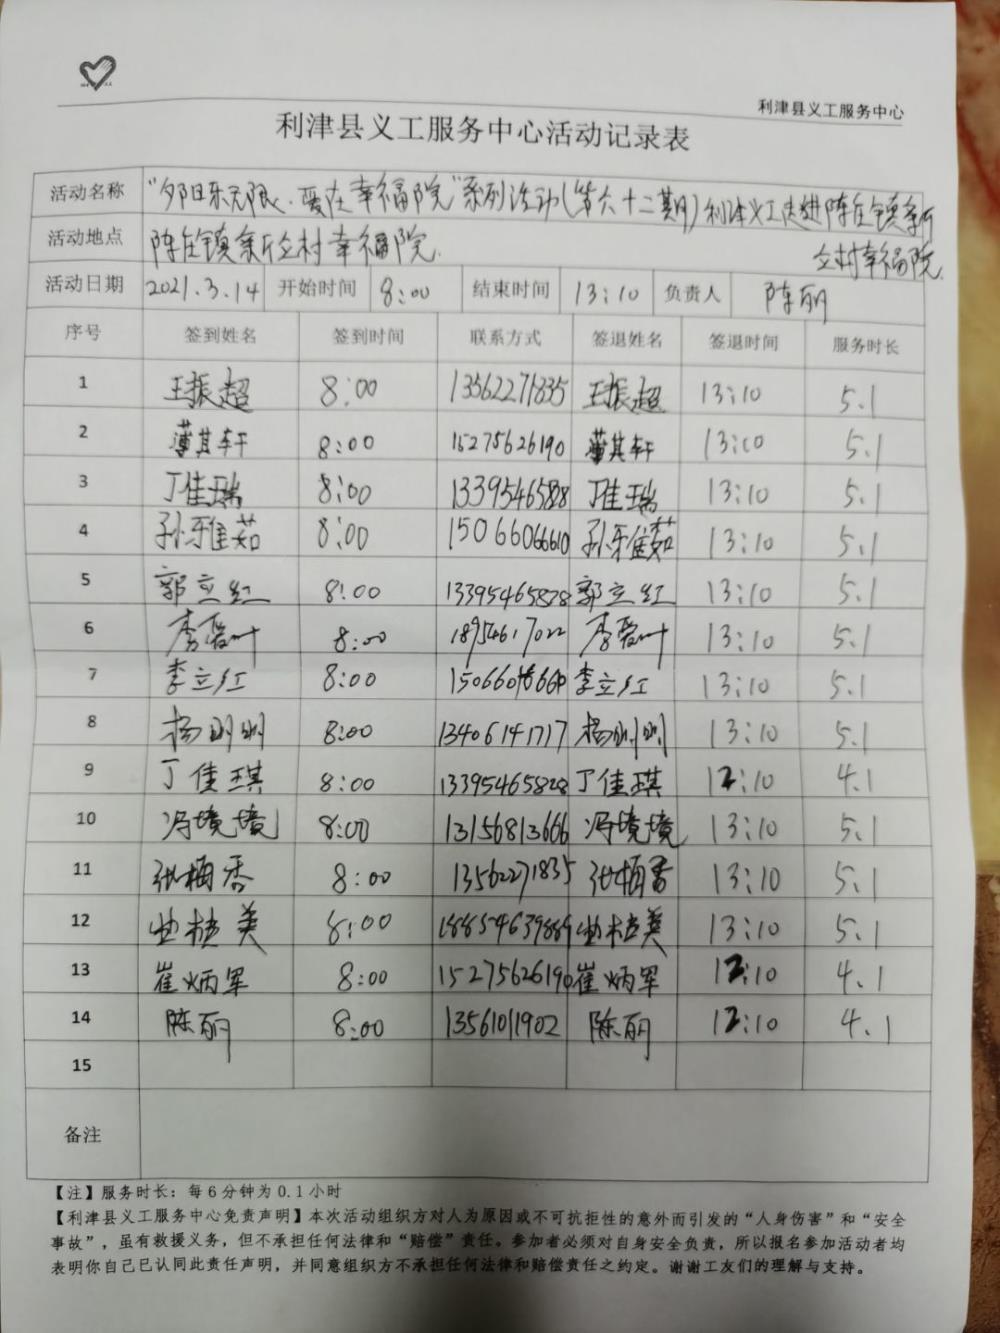 利津县义工服务中心
利津县义工服务中心活动记录表
活动名称 "夕阳乐无限.爱在幸福院"系列活动(第六十二期)利津义工走进陈庄镇
立村幸福院.
活动地点 陈庄镇 立村幸福院.
活动日期 2021.3.14 开始时间 8:00 结束时间 13:10 负责人 陈丽
序号 签到姓名 签到时间 联系方式 签退姓名 签退时间 服务时长
1 王振超 8:00 13562271835 王振超 13:10 5.1
2 薄其轩 8:00 15275626190 薄其轩 13:10 5.1
3 丁佳瑞 8:00 13395465828 丁佳瑞 13:10 5.1
4 孙雅茹 8:00 15066066610 孙雅茹 13:10 5.1
5 郭立红 8:00 13395465828 郭立红 13:10 5.1
6 李 叶 8:00 18954617022 李 叶 13:10 5.1
7 李立红 8:00 李立红 13:10 5.1
8 杨明明 8:00 13406141717 杨明明 13:10 5.1
9 丁佳琪 8:00 13395465828 丁佳琪 12:10 4.1
10 冯境境 8:00 13156813666 冯境境 13:10 5.1
11 张梅香 8:00 13562271835 张梅香 13:10 5.1
12 美 8:00 18854639889 美 13:10 5.1
13 崔炳军 8:00 15275626190 崔炳军 12:10 4.1
14 陈丽 8:00 13561011902 陈丽 12:10 4.1
15
备注
【注】服务时长：每6分钟为0.1小时
【利津县义工服务中心免责声明】本次活动组织方对人为原因或不可抗拒性的意外而引发的“人身伤害”和“安全
事故”，虽有救援义务，但不承担任何法律和“赔偿”责任。参加者必须对自身安全负责，所以报名参加活动者均
表明你自己已认同此责任声明，并同意组织方不承担任何法律和赔偿责任之约定。谢谢工友们的理解与支持。